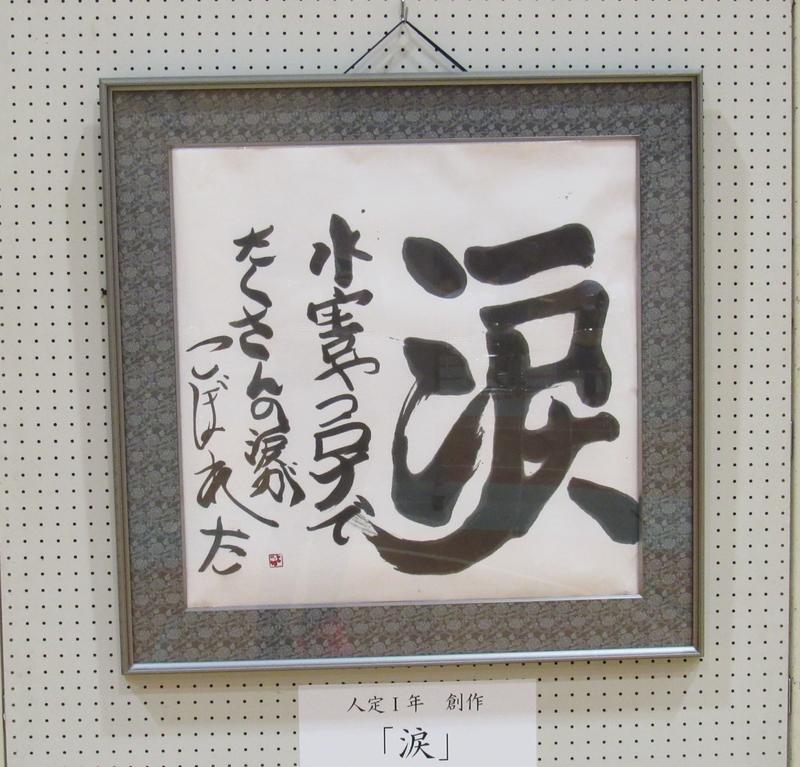 涙
水害やコロナで
たくさんの涙が
こぼれた
人定I年 創作
「涙」